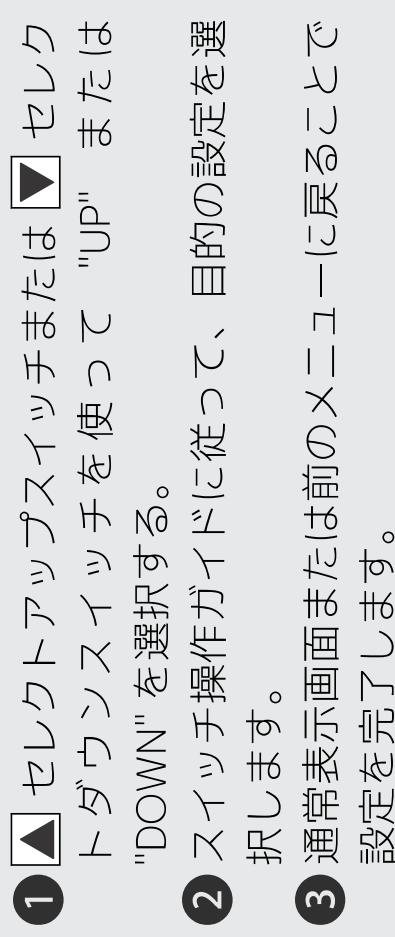 1 ▲ セレクトアップスイッチまたは ▼ セレク
トダウンスイッチを使って "UP" または
"DOWN" を選択する。
2 スイッチ操作ガイドに従って、目的の設定を選
択します。
3 通常表示画面または前のメニューに戻ることで
設定を完了します。